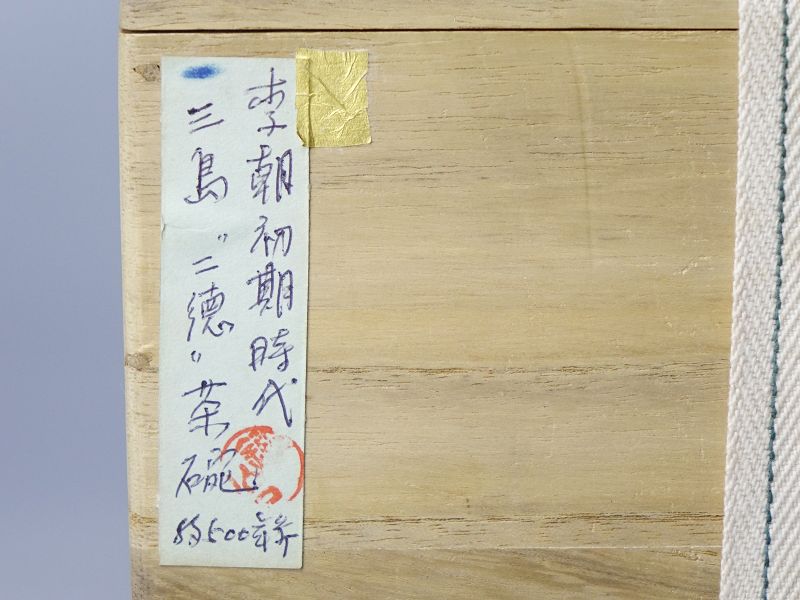 李朝初期時代
三島〝二徳〟茶碗
約500年前